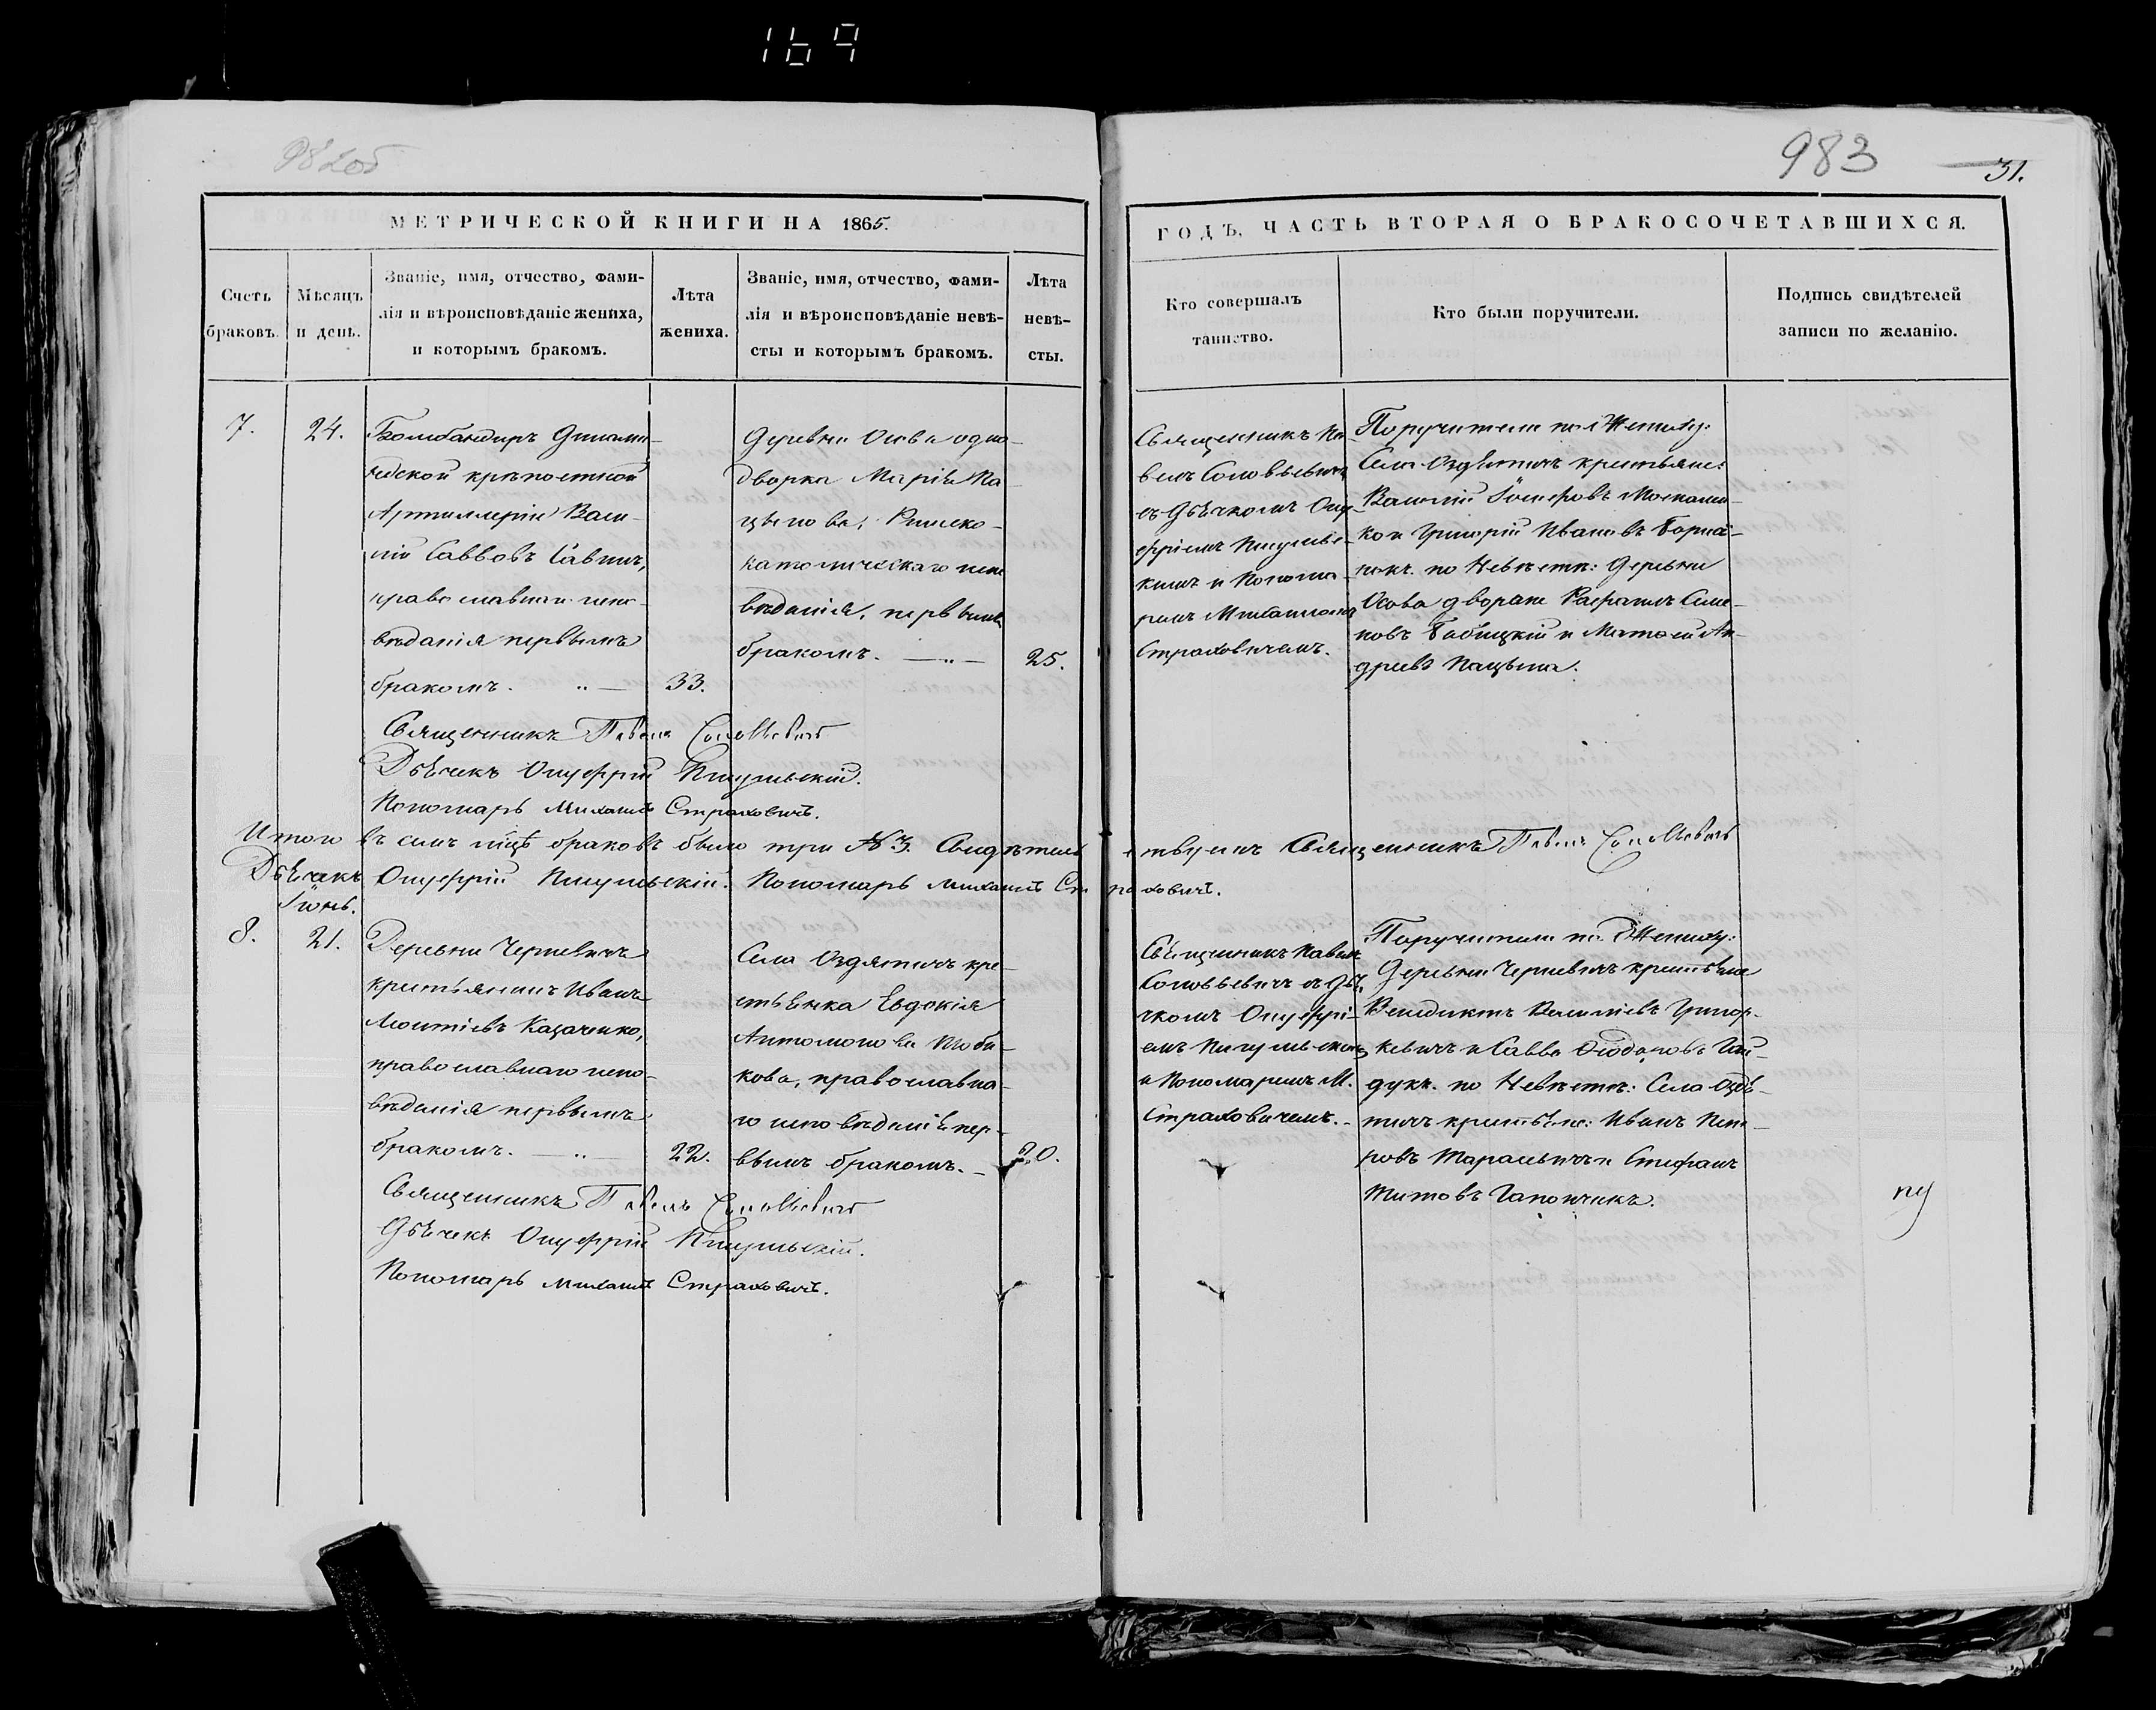 169
982об
983
31.
МЕТРИЧЕСКОЙ КНИГИ НА 1865.
ГОДЪ, ЧАСТЬ ВТОРАЯ О БРАКОСОЧЕТАВШИХСЯ.
Счетъ
браковъ.
Мѣсяцъ
и день.
Званіе, имя, отчество, фами-
лія и вѣроисповѣданіе жениха,
и которымъ бракомъ.
Лѣта
жениха.
Званіе, имя, отчество, фами-
лія и вѣроисповѣданіе невѣ-
сты и которымъ бракомъ.
Лѣта
невѣ-
сты.
Кто совершалъ
таинство.
Кто были поручители.
Подпись свидѣтелей
записи по желанію.
7.
24.
Бомбандиръ Динами-
ндской крѣпостной
Артиллеріи Васи-
лій Саввовъ Савичъ,
православнаго испо-
вѣданія первымъ
бракомъ.
33.
Деревни Осова одно-
дворка Марія Па-
цынова, Римско-
католическаго испо
вѣданія, первымъ
бракомъ.
25.
Священникъ Па-
велъ Соловьевичъ
съ Дьячкомъ Ону-
фріемъ Пигулев-
скимъ и Понома-
ремъ Михаиломъ
Страховичемъ.
Поручители по Жениху:
Села Оздятичъ крестьяне:
Василій Іосифовъ Москалин-
ко и Григорій Ивановъ
по Невѣстѣ: Деревни
Осова дворяне Рафаилъ Симо-
новъ Бабицкій и Матвей Ан-
дреевъ Пацына.
Священникъ Павелъ Соловьевичъ
Дьячекъ Онуфрій Пигулевскій.
Пономарь Михаилъ Страховичъ.
Итого въ семъ м҃цѣ браковъ было три № 3. Свидѣтельствуемъ Священникъ Павелъ Соловьевичъ
Дьячекъ Онуфрій Пигулевскій. Пономарь Михаилъ Страховичъ.
Іюнь.
8.
21.
Деревни Черневичъ
крестьянинъ Иванъ
Леонтіевъ Казаченко,
православнаго испо-
вѣданія первымъ
бракомъ.
22.
Села Оздятичъ кре-
стьянка Евдокія
Антомонова
кова, православна-
го исповѣданія пер-
вымъ бракомъ.
20.
Священникъ Павелъ
Соловьевичъ съ Дья-
чкомъ Онуфрі-
емъ Пигулевскимъ
и Пономаремъ М.
Страховичемъ.
Поручители по Жениху:
Деревни Черневичъ крестьяне
Венедиктъ Василіевъ Григор-
кевичъ и Савва Ѳеодоровъ Гай-
дукъ. по Невѣстѣ: Села Оздя-
тичъ крестьяне: Иванъ Пет-
ровъ Тарасевичъ и Стефанъ
Титовъ Гапончикъ.
Священникъ Павелъ Соловьевичъ
Дьячекъ Онуфрій Пигулевскій.
Пономарь Михаилъ Страховичъ.